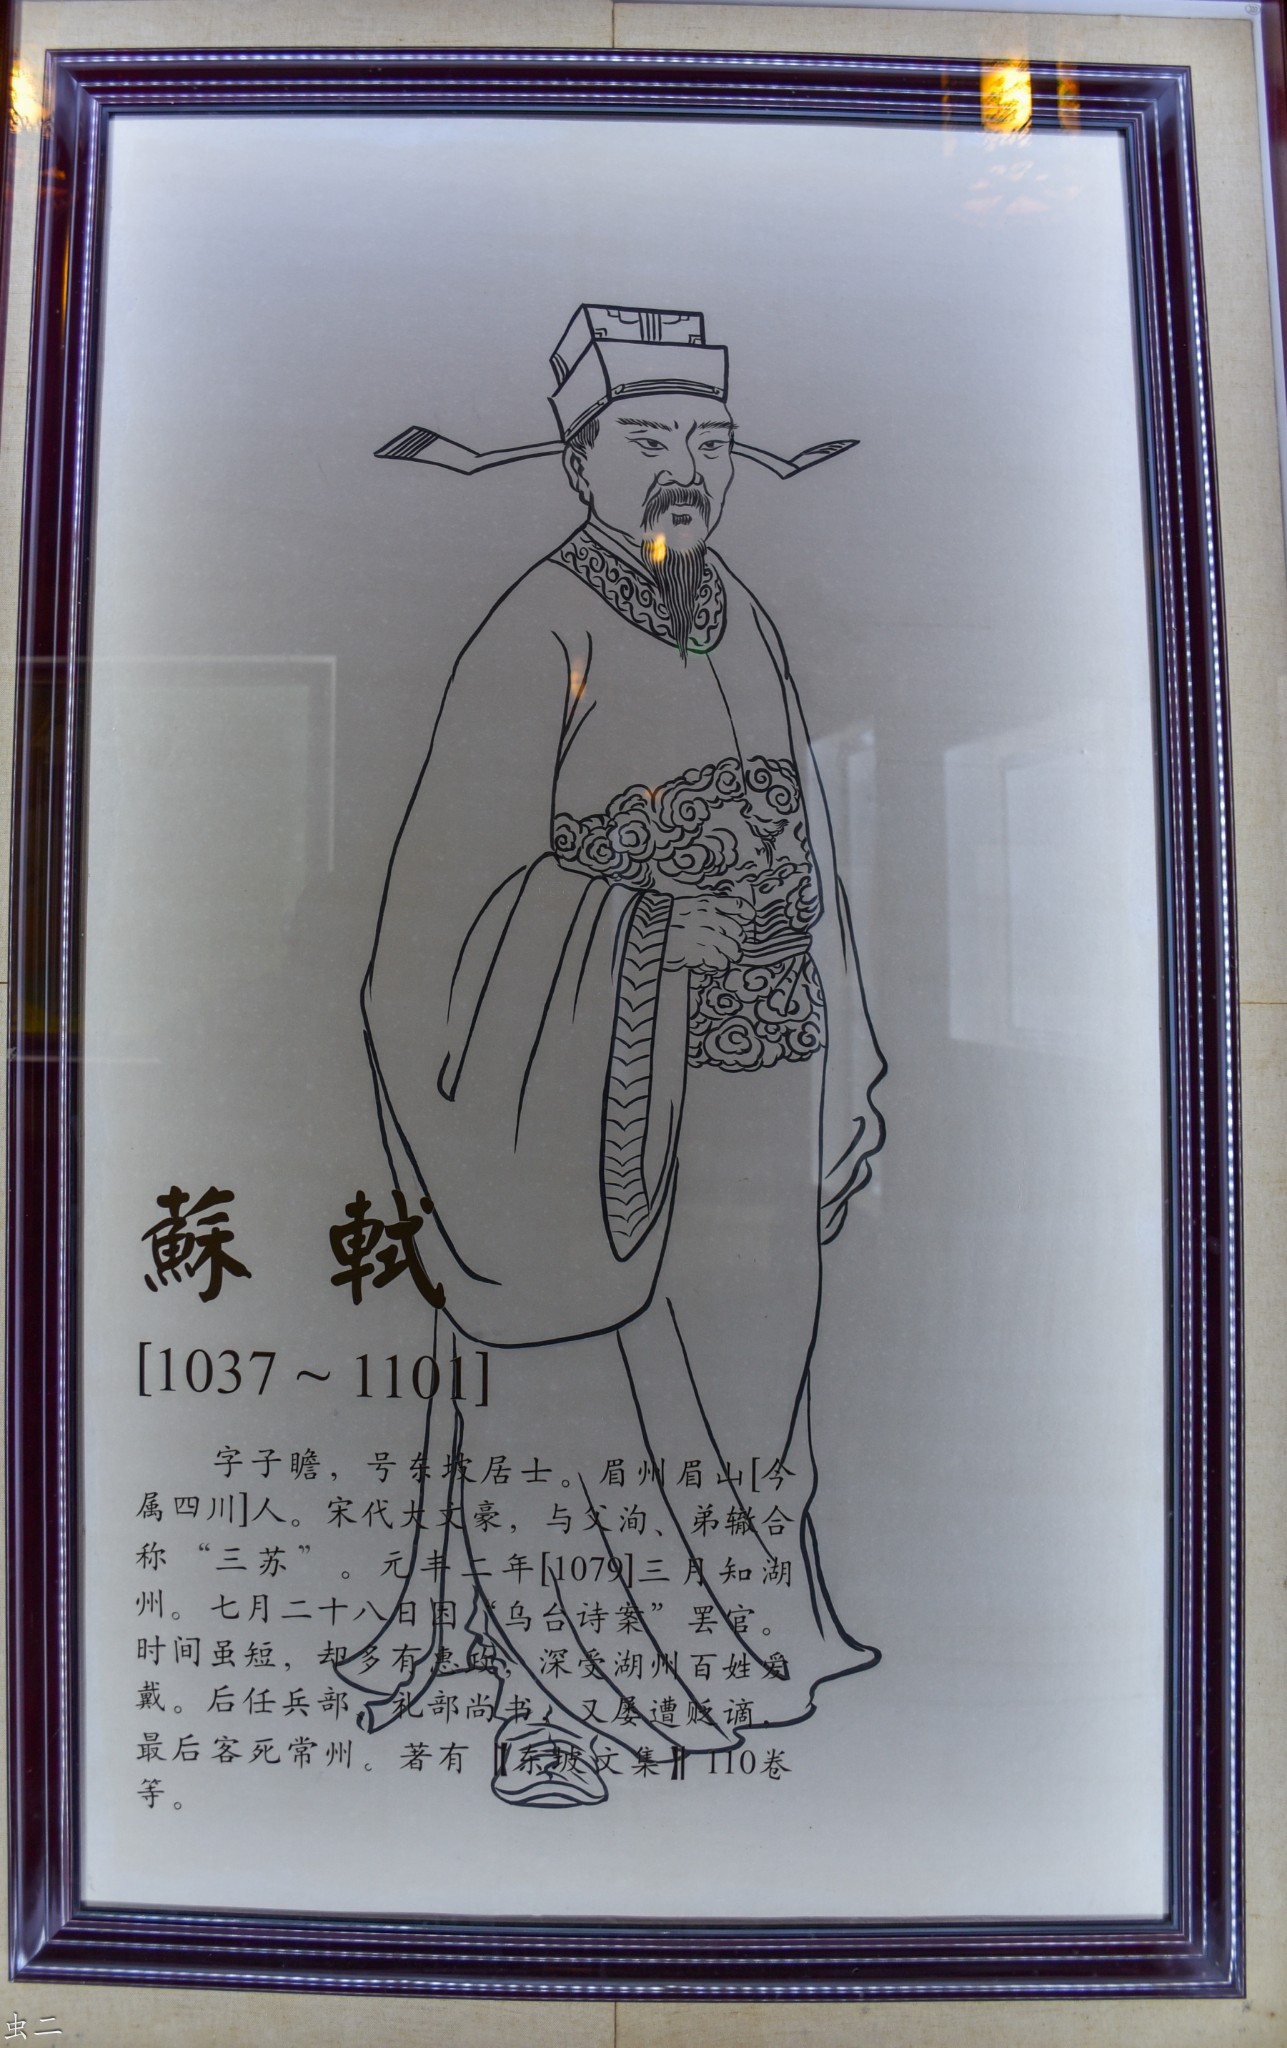 蘇 軾
[1037~1101]
字子瞻，号东坡居士。眉州眉山[今
属四川]人。宋代大文豪，与父洵、弟辙合
称“三苏”。元丰二年[1079]三月知湖
州。七月二十八日因“乌台诗案”罢官。
时间虽短，却多有惠政，深受湖州百姓爱
戴。后任兵部、礼部尚书，又屡遭贬谪，
最后客死常州。著有《东坡文集》110卷
等。
虫二